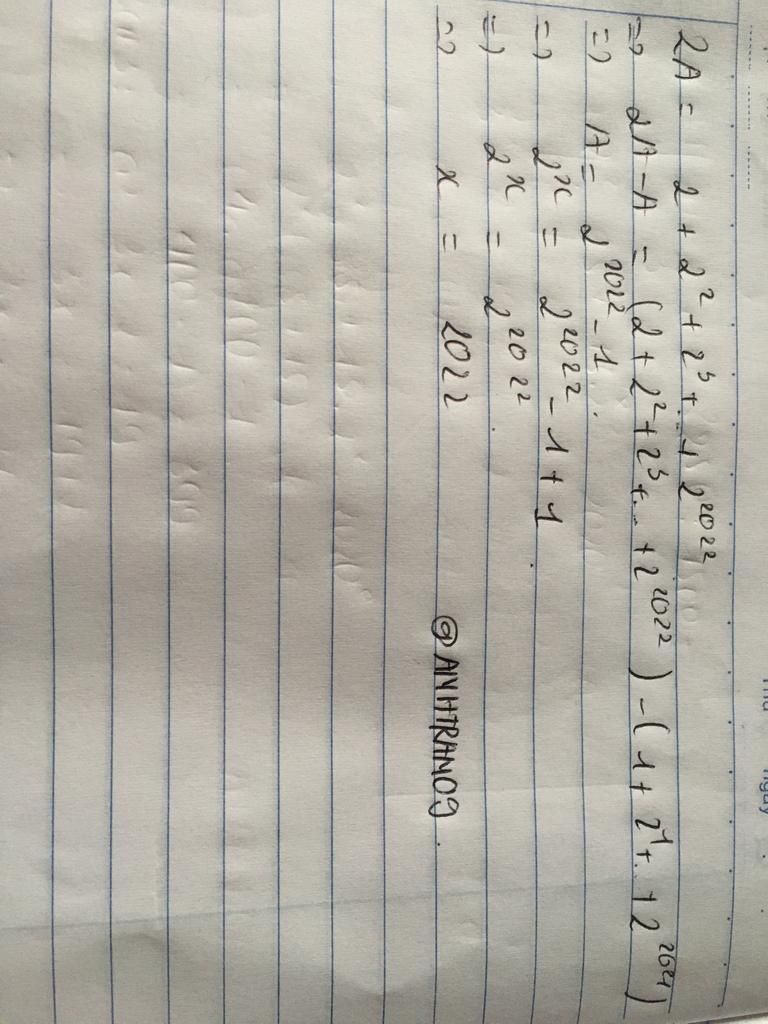 Thứ ngày
2A = 2 + 2² + 2³ + ... + 2²⁰²²
=> 2A - A = (2 + 2² + 2³ + ... + 2²⁰²²) - (1 + 2¹ + ... + 2²⁰²¹)
=> A = 2²⁰²² - 1.
=> 2ˣ = 2²⁰²² - 1 + 1
=> 2ˣ = 2²⁰²²
=> x = 2022
@ANHTRAM09.